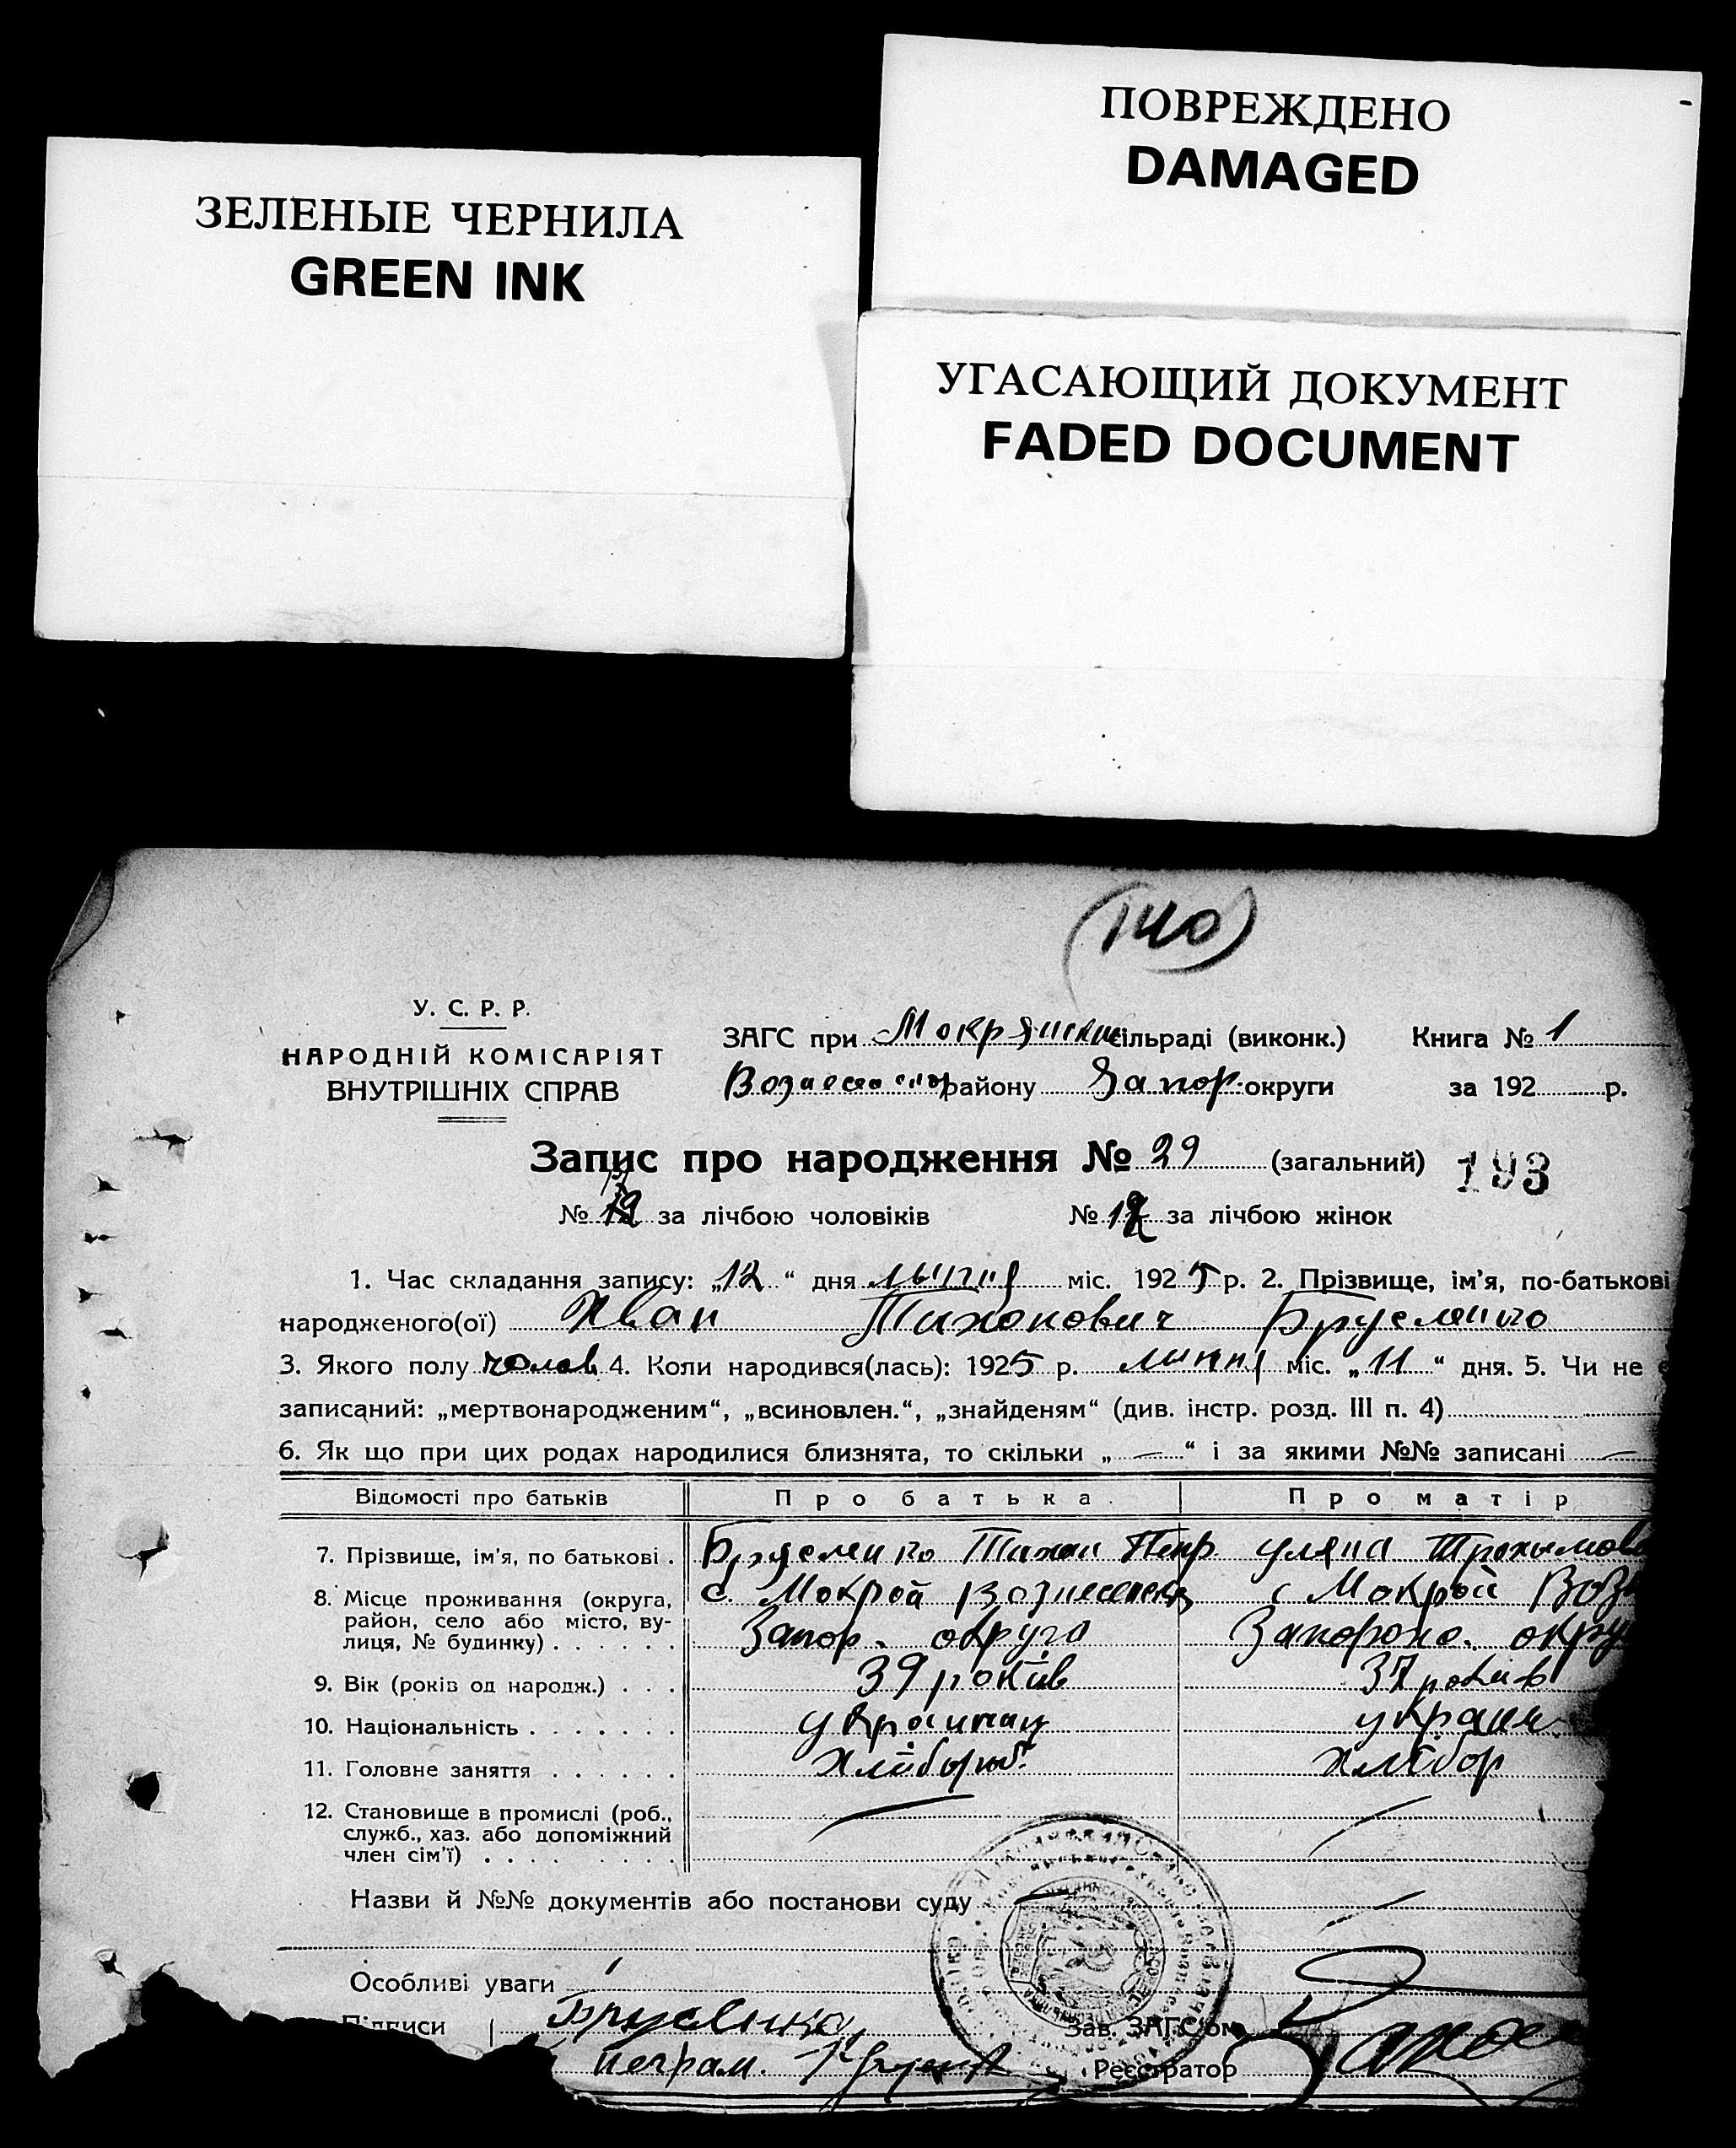 ЗЕЛЕНЫЕ ЧЕРНИЛА
GREEN INK
ПОВРЕЖДЕНО
DAMAGED
УГАСАЮЩИЙ ДОКУМЕНТ
FADED DOCUMENT
(140)
У. С. Р. Р.
НАРОДНІЙ КОМІСАРІЯТ
ВНУТРІШНІХ СПРАВ
ЗАГС при сільраді (виконк.) Книга № 1
району Запор. округи за 192 р.
Запис про народження № 29 (загальний) 193
№ за лічбою чоловіків № за лічбою жінок
1. Час складання запису: „12“ дня міс. 1925 р. 2. Прізвище, ім'я, по-батькові
народженого(ої) Иван Тихонович
3. Якого полу чолов 4. Коли народився(лась): 1925 р. міс. „11“ дня. 5. Чи не є
записаний: „мертвонародженим“, „всиновлен.“, „знайденям“ (див. інстр. розд. III п. 4)
6. Як що при цих родах народилися близнята, то скільки „—“ і за якими №№ записані —
Відомості про батьків Про батька. Про матір
7. Прізвище, ім'я, по батькові . Тихон Петр уляна
8. Місце проживання (округа, район, село або місто, вулиця, № будинку) . . . . . . с. Мокрой с Мокрой
Запор. округа Запорож. окру
9. Вік (років од народж.) . . . 39 років 37 років
10. Національність . . . . . . . україн
11. Головне заняття . . . . . . хлібороб. хлібор
12. Становище в промислі (роб., служб., хаз. або допоміжний член сім'ї) . . . . . . . . .
Назви й №№ документів або постанови суду
Особливі уваги
Підписи Зав. ЗАГС'ом
неграм. Реєстратор